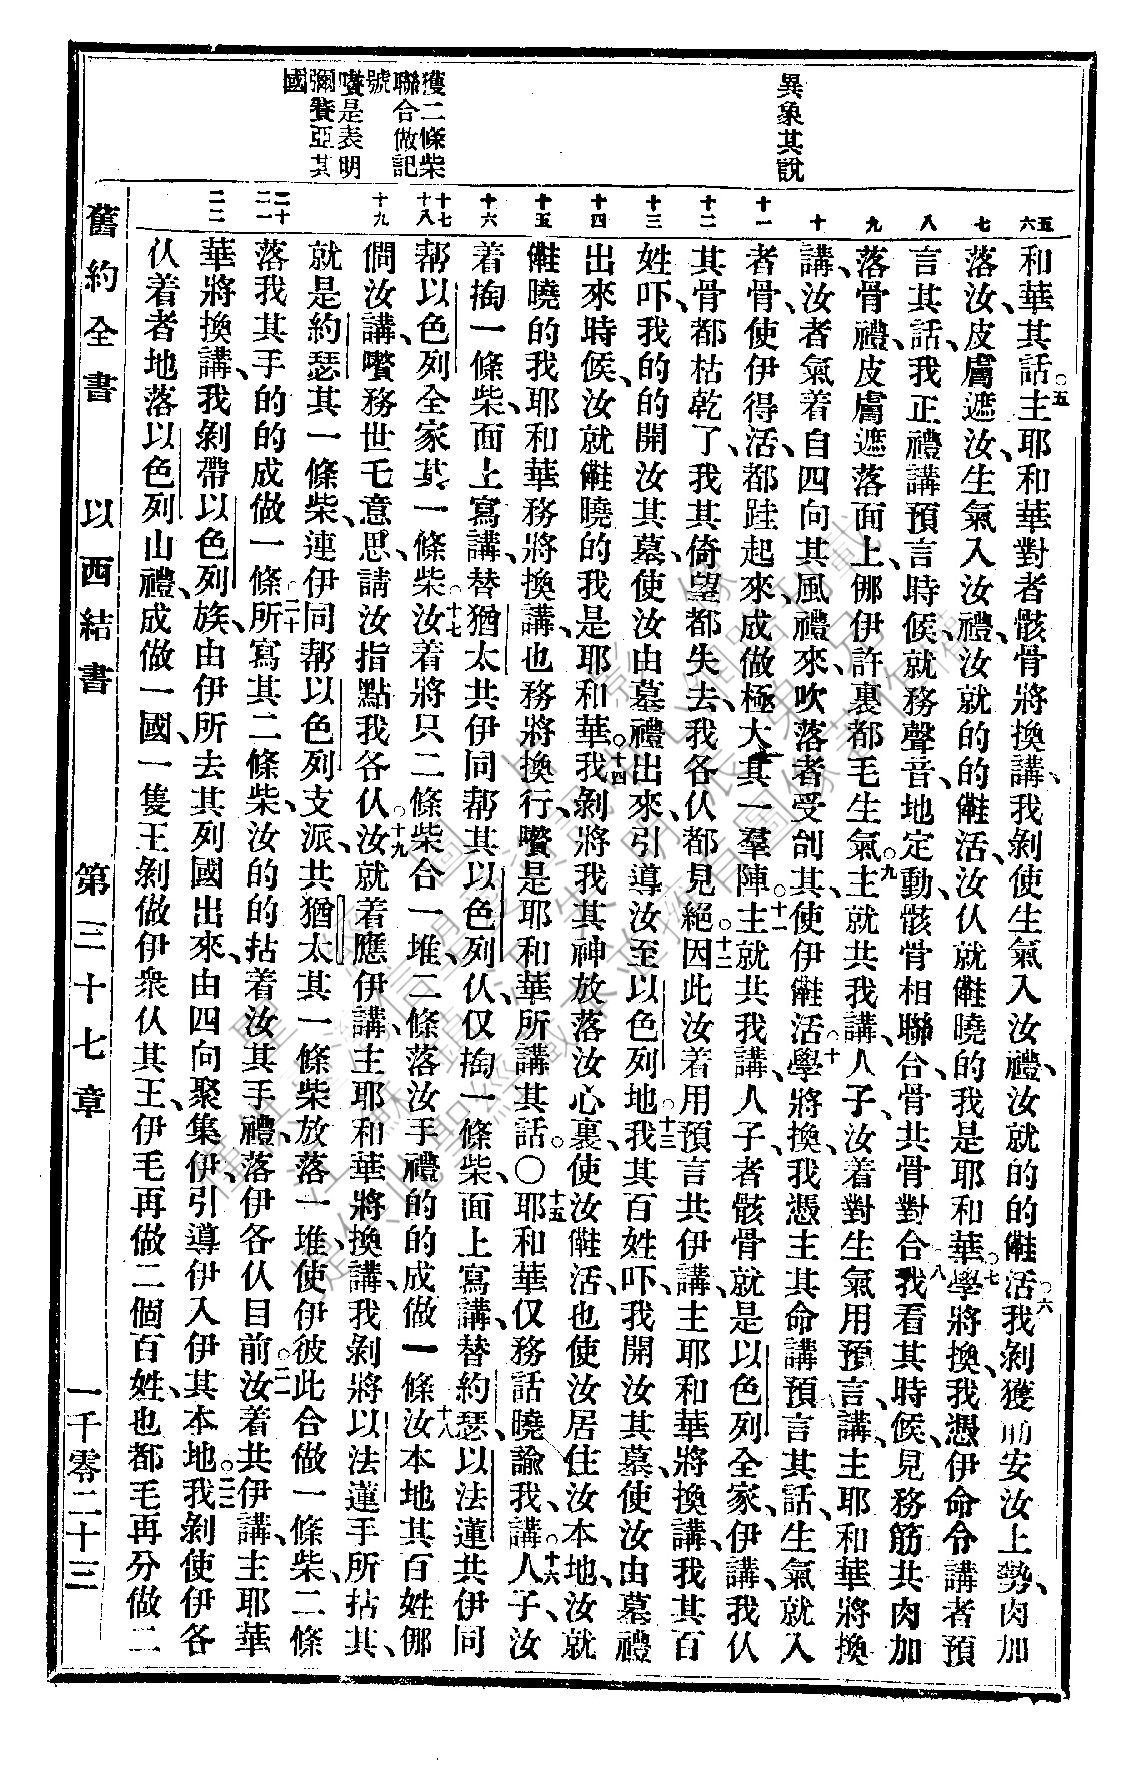 異象其說
獲二條柴
聯合做記
號
嚽是表明
彌賽亞其
國
五 六 七 八 九 十 十一 十二 十三 十四 十五 十六 十七 十八 十九 二十 二一 二二
和華其話、○五主耶和華對者骸骨將換講、我剝使生氣入汝禮、汝就的的活、○六我剝獲筋安汝上勢、肉加
落汝、皮膚遮汝、生氣入汝禮、汝就的的活、汝仈就曉的我是耶和華、○七學將換、我憑伊命令講者預
言其話、我正禮講預言時候、就務聲音、地定動、骸骨相聯合、骨共骨對合、八我看其時候、見務筋共肉加
落骨禮、皮膚遮落面上、㑚伊許裏都毛生氣、○九主就共我講、人子、汝着對生氣用預言、講、主耶和華將換
講、汝者氣着自四向其風禮來、吹落者受刣其、使伊活、○十學將換、我憑主其命講預言其話、生氣就入
者骨、使伊得活、都跬起來、成做極大其一羣陣、○十一主就共我講、人子、者骸骨就是以色列全家、伊講、我仈
其骨都枯乾了、我其倚望都失去、我各仈都見絕、○十二因此汝着用預言共伊講、主耶和華將換講、我其百
姓吓、我的的開汝其墓、使汝由墓禮出來、引導汝至以色列地、○十三我其百姓吓、我開汝其墓、使汝由墓禮
出來時候、汝就曉的我是耶和華、○十四我剝將我其神放落汝心裏、使汝活、也使汝居住汝本地、汝就
曉的我耶和華務將換講、也務將換行、嚽是耶和華所講其話。○十五耶和華仅務話曉諭我、講、○十六人子、汝
着掏一條柴、面上寫講、替猶太共伊同幫其以色列仈、仅掏一條柴、面上寫講、替約瑟、以法蓮共伊同
幫以色列全家其一條柴、○十七汝着將只二條柴合一堆、二條落汝手禮的的成做一條、十八汝本地其百姓㑚
㑚汝講、嚽務世乇意思、請汝指點我各仈、○十九汝就着應伊講、主耶和華將換講、我剝將以法蓮手所拈其、
就是約瑟其一條柴、連伊同幫以色列支派、共猶太其一條柴放落一堆、使伊彼此合做一條柴、二條
落我其手的的成做一條、○二十所寫其二條柴、汝的的拈着汝其手禮、落伊各仈目前、○二一汝着共伊講、主耶和
華將換講、我剝帶以色列族、由伊所去其列國出來、由四向聚集伊、引導伊入伊其本地、○二二我剝使伊各
仈着者地落以色列山禮、成做一國、一隻王剝做伊衆仈其王、伊毛再做二個百姓、也都毛再分做二
舊約全書　以西結書　第三十七章　一千零二十三